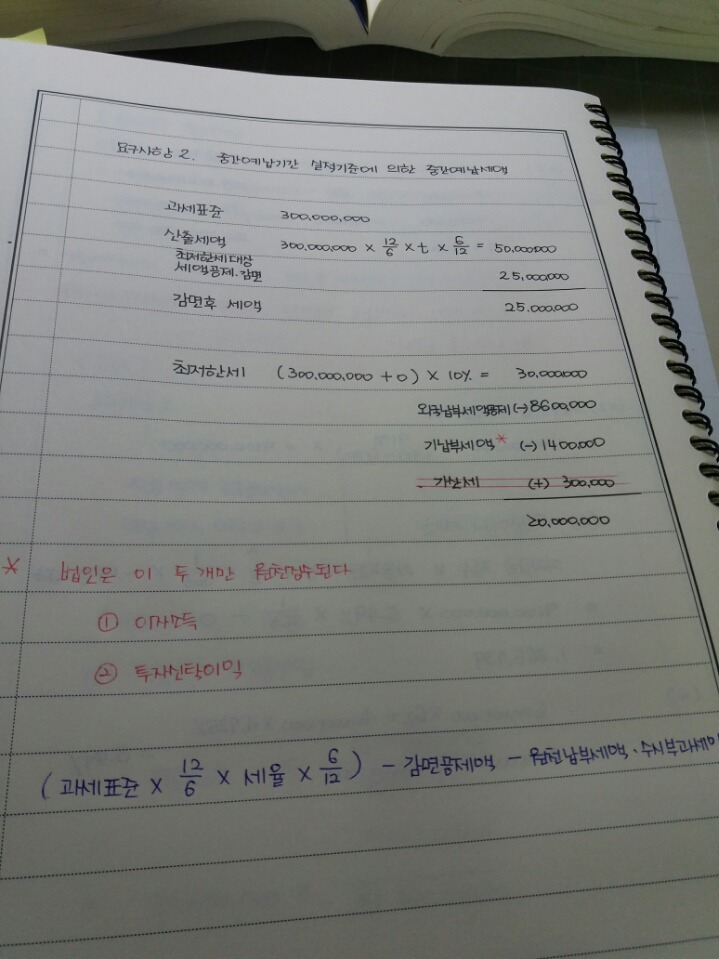 요구사항 2. 중간예납기간 실적기준에 의한 중간예납세액
과세표준 300,000,000
산출세액 300,000,000 × 12/6 × t × 6/12 = 50,000,000
최저한세대상
세액공제·감면 25,000,000
감면후 세액 25,000,000
최저한세 (300,000,000 + 0) × 10% = 30,000,000
외국납부세액공제 (-) 8600,000
기납부세액* (-) 1400,000
가산세 (+) 300,000
20,000,000
* 법인은 이 두 개만 원천징수된다
① 이자소득
② 투자신탁이익
(과세표준 × 12/6 × 세율 × 6/12) - 감면공제액 - 원천납부세액·수시부과세